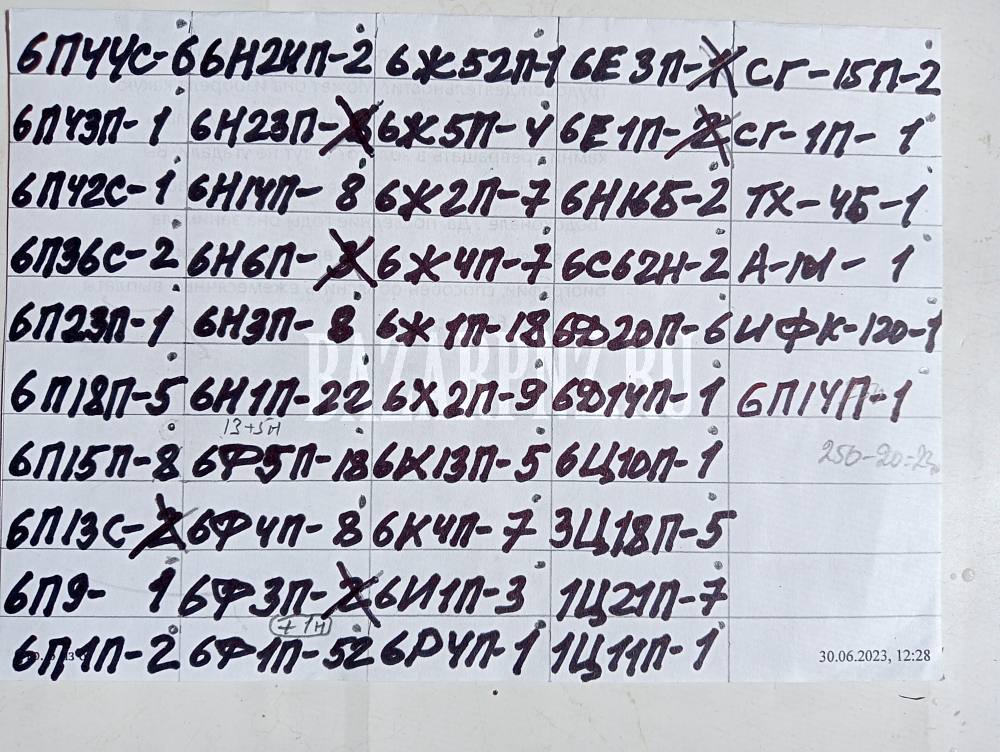 6П44С-6 6Н24П-2 6Ж52П-1 6Е3П- СГ-15П-2
6П43П-1 6Н23П- 6Ж5П-4 6Е1П-2 СГ-1П-1
6П42С-1 6Н14П-8 6Ж2П-7 6Н16Б-2 ТХ-4Б-1
6П36С-2 6Н6П-3 6Ж4П-7 6С62Н-2 А-101-1
6П23П-1 6Н3П-8 6Ж1П-18 6Д20П-6 ИФК-120-1
6П18П-5 6Н1П-22 6Х2П-9 6Д14П-1 6П14П-1
13+5Н
6П15П-8 6Ф5П-18 6К13П-5 6Ц10П-1
6П13С-2 6Ф4П-8 6К4П-7 3Ц18П-5
6П9-1 6Ф3П-2 6И1П-3 1Ц21П-7
+1Н
6П1П-2 6Ф1П-52 6Р4П-1 1Ц11П-1
30.06.2023, 12:28
BAZARPNZ.RU